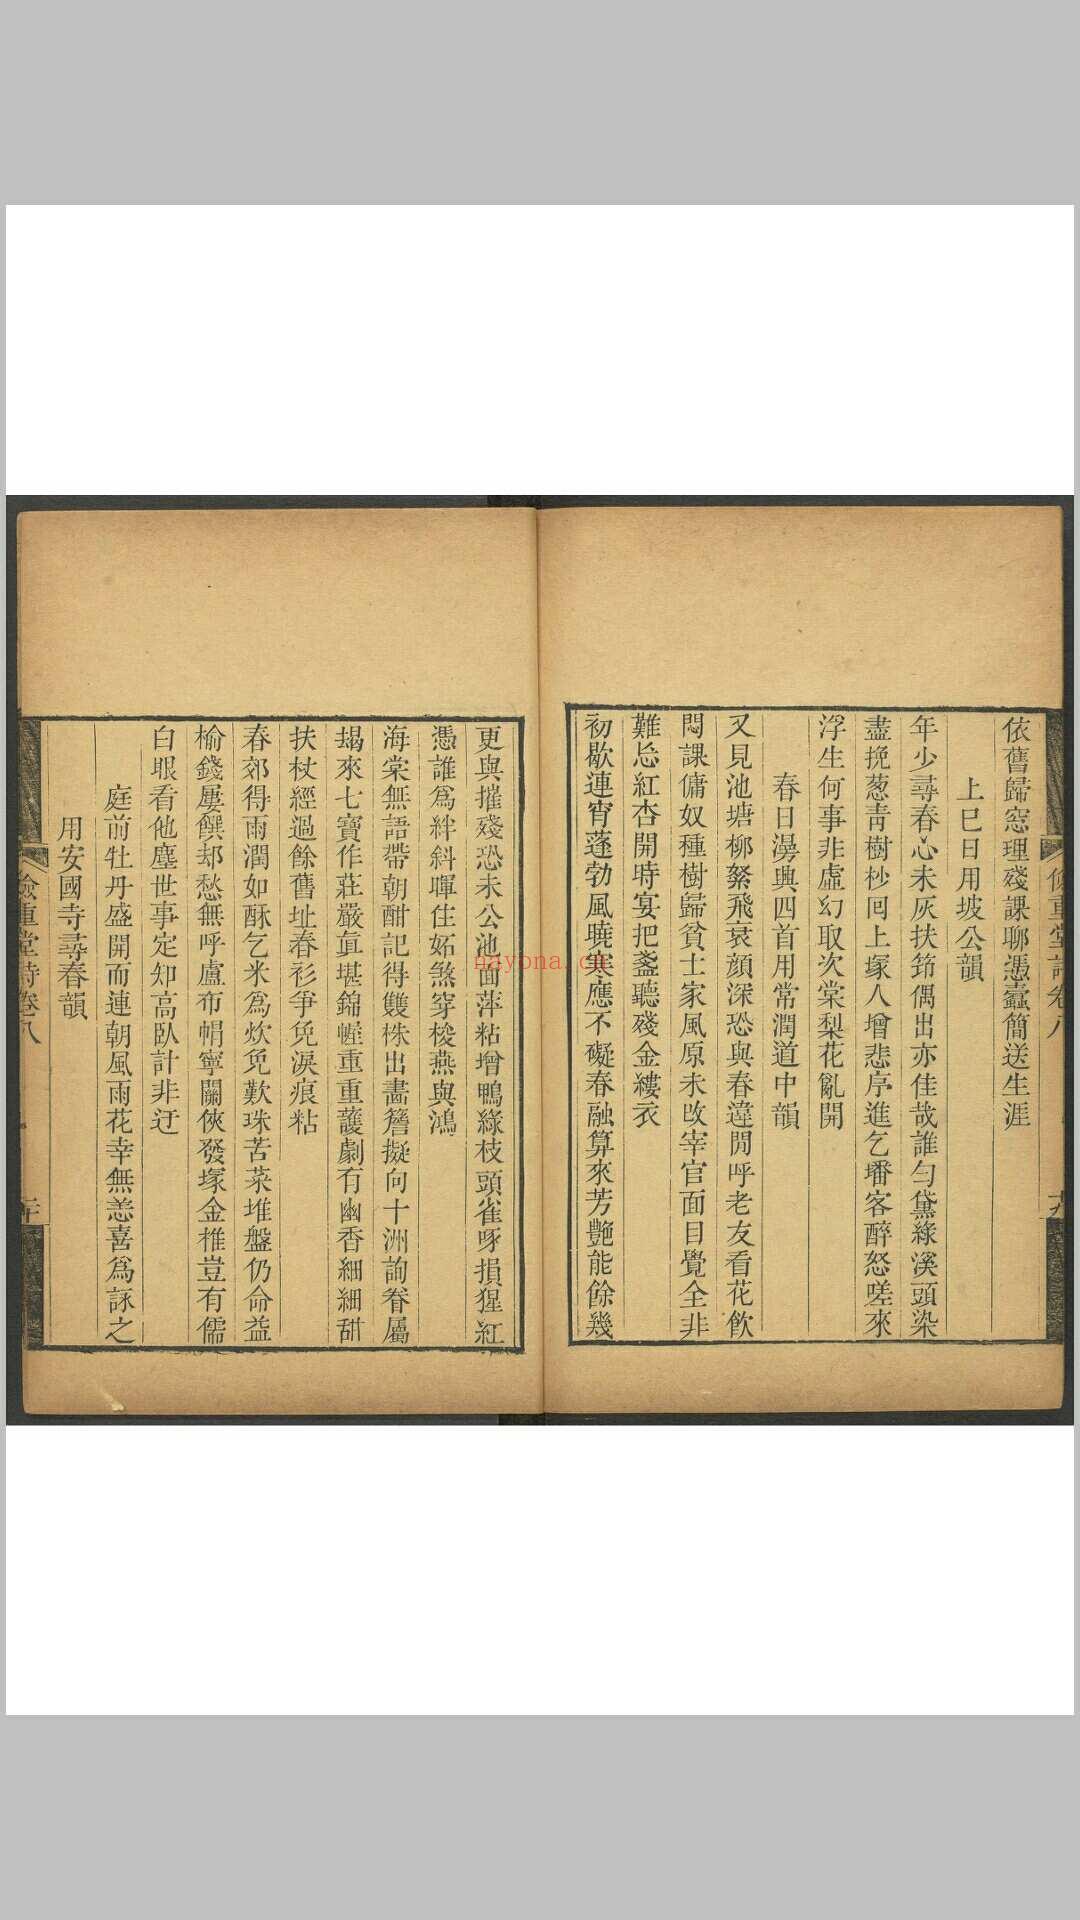 依舊歸窓理殘課聊憑蠹簡送生涯
上巳日用坡公韻
年少尋春心未灰扶筇偶出亦佳哉誰勻黛綠溪頭染
盡挽葱靑樹杪囘上塚人增悲序進乞墦客醉怒嗟來
浮生何事非虛幻取次棠梨花亂開
春日漫興四首用常潤道中韻
又見池塘柳絮飛衰顔深恐與春違閒呼老友看花飮
悶課傭奴種樹歸貧士家風原未改宰官面目覺全非
難忘紅杏開時宴把盞聽殘金縷衣
初歇連宵蓬勃風曉寒應不礙春融算來芳艷能餘幾
更與摧殘恐未公池面萍粘增鴨綠枝頭雀啄損猩紅
憑誰爲絆斜暉住妬煞穿梭燕與鴻
海棠無語帶朝酣記得雙株出畵簷擬向十洲詢眷屬
朅來七寶作莊嚴眞堪錦幄重重護劇有幽香細細甜
扶杖經過餘舊址春衫爭免淚痕粘
春郊得雨潤如酥乞米爲炊免歎珠苦菜堆盤仍命益
榆錢屢饌却愁無呼盧布帽寧關俠發塚金椎豈有儒
白眼看他塵世事定知高臥計非迂
庭前牡丹盛開而連朝風雨花幸無恙喜爲詠之
用安國寺尋春韻
儉重堂詩卷八
nayona.cn